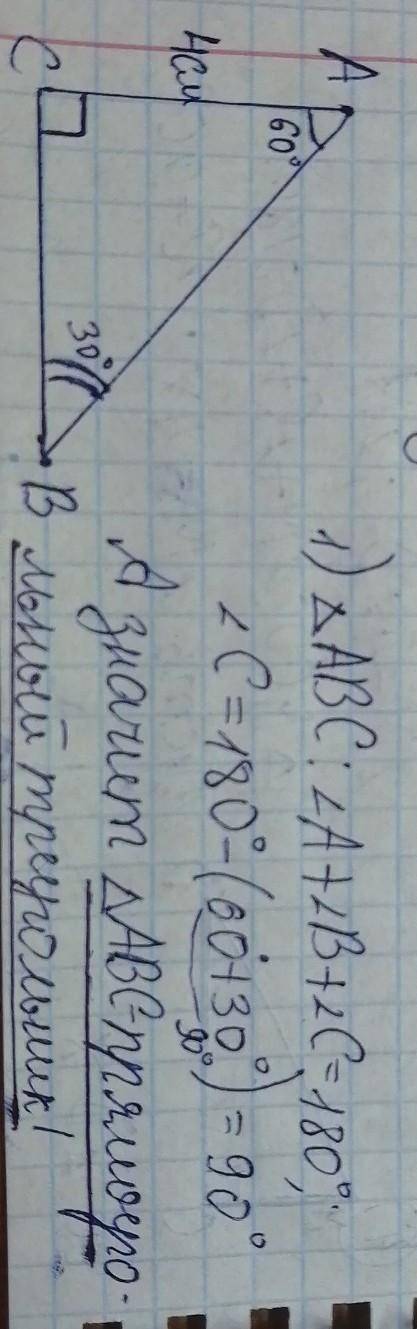 A
4см
60°
C
30°
B
1) △ABC: ∠A+∠B+∠C=180°,
∠C=180°-(60°+30°)=90°
90°
А значит △ABC-прямоуго-
льный треугольник!